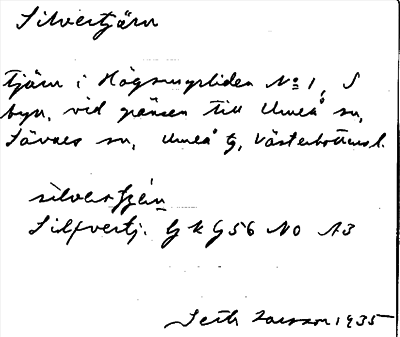 Silvertjärn
tjärn i Högsmyrliden No 1, S
byn, vid gränsen till Umeå sn,
Sävars sn, Umeå tg, Västerbottens l.
silvertjän
Silfvertj. GK G56 NO A3
Seth Larsson 1935